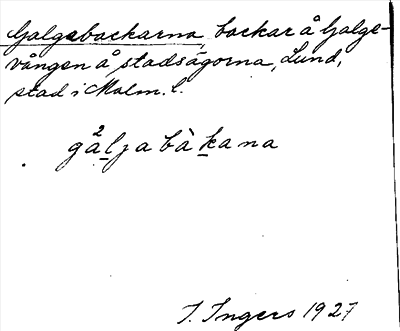 Galgebackarna, backar å Galge-
vången å stadsägorna, Lund,
stad i Malm. l.
gå²lja bà kana
I. Ingers 1927